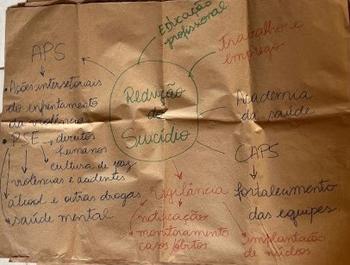 Educação
profissional
Trabalho e
emprego
APS
Ações intersetoriais
do enfrentamento
da violência
PSE
direitos
humanos
cultura de paz
violências e acidentes
álcool e outras drogas
saúde mental
Redução
do
Suicídio
Academia
da saúde
CAPS
fortalecimento
das equipes
implantação
de núcleos
Vigilância
notificação
monitoramento
casos/óbitos